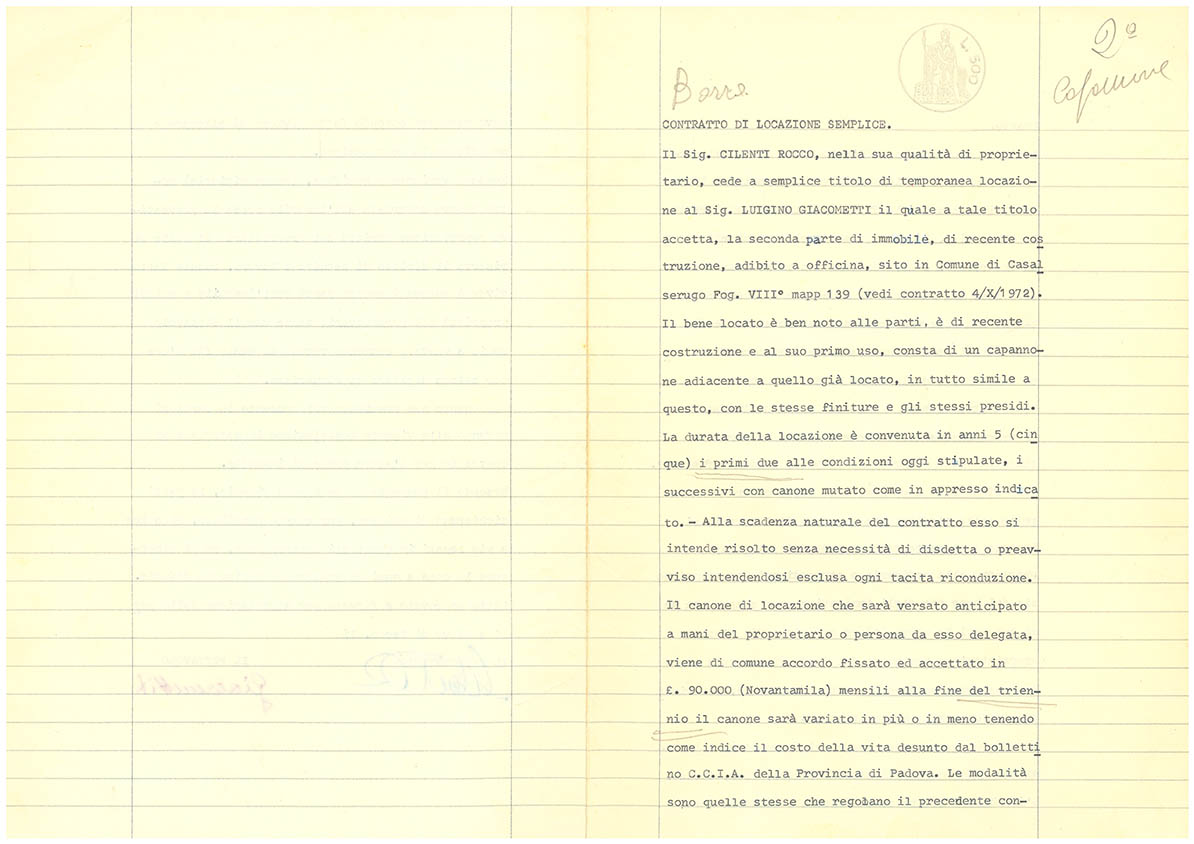 L. 500
2º
Capannone
CONTRATTO DI LOCAZIONE SEMPLICE.
Il Sig. CILENTI ROCCO, nella sua qualità di proprie-
tario, cede a semplice titolo di temporanea locazio-
ne al Sig. LUIGINO GIACOMETTI il quale a tale titolo
accetta, la seconda parte di immobile, di recente cos
truzione, adibito a officina, sito in Comune di Casal
serugo Fog. VIIIº mapp 139 (vedi contratto 4/X/1972).
Il bene locato è ben noto alle parti, è di recente
costruzione e al suo primo uso, consta di un capanno-
ne adiacente a quello già locato, in tutto simile a
questo, con le stesse finiture e gli stessi presidi.
La durata della locazione è convenuta in anni 5 (cin
que) i primi due alle condizioni oggi stipulate, i
successivi con canone mutato come in appresso indica
to.- Alla scadenza naturale del contratto esso si
intende risolto senza necessità di disdetta o preav-
viso intendendosi esclusa ogni tacita riconduzione.
Il canone di locazione che sarà versato anticipato
a mani del proprietario o persona da esso delegata,
viene di comune accordo fissato ed accettato in
£. 90.000 (Novantamila) mensili alla fine del trien-
nio il canone sarà variato in più o in meno tenendo
come indice il costo della vita desunto dal bolletti
no C.C.I.A. della Provincia di Padova. Le modalità
sono quelle stesse che regolano il precedente con-